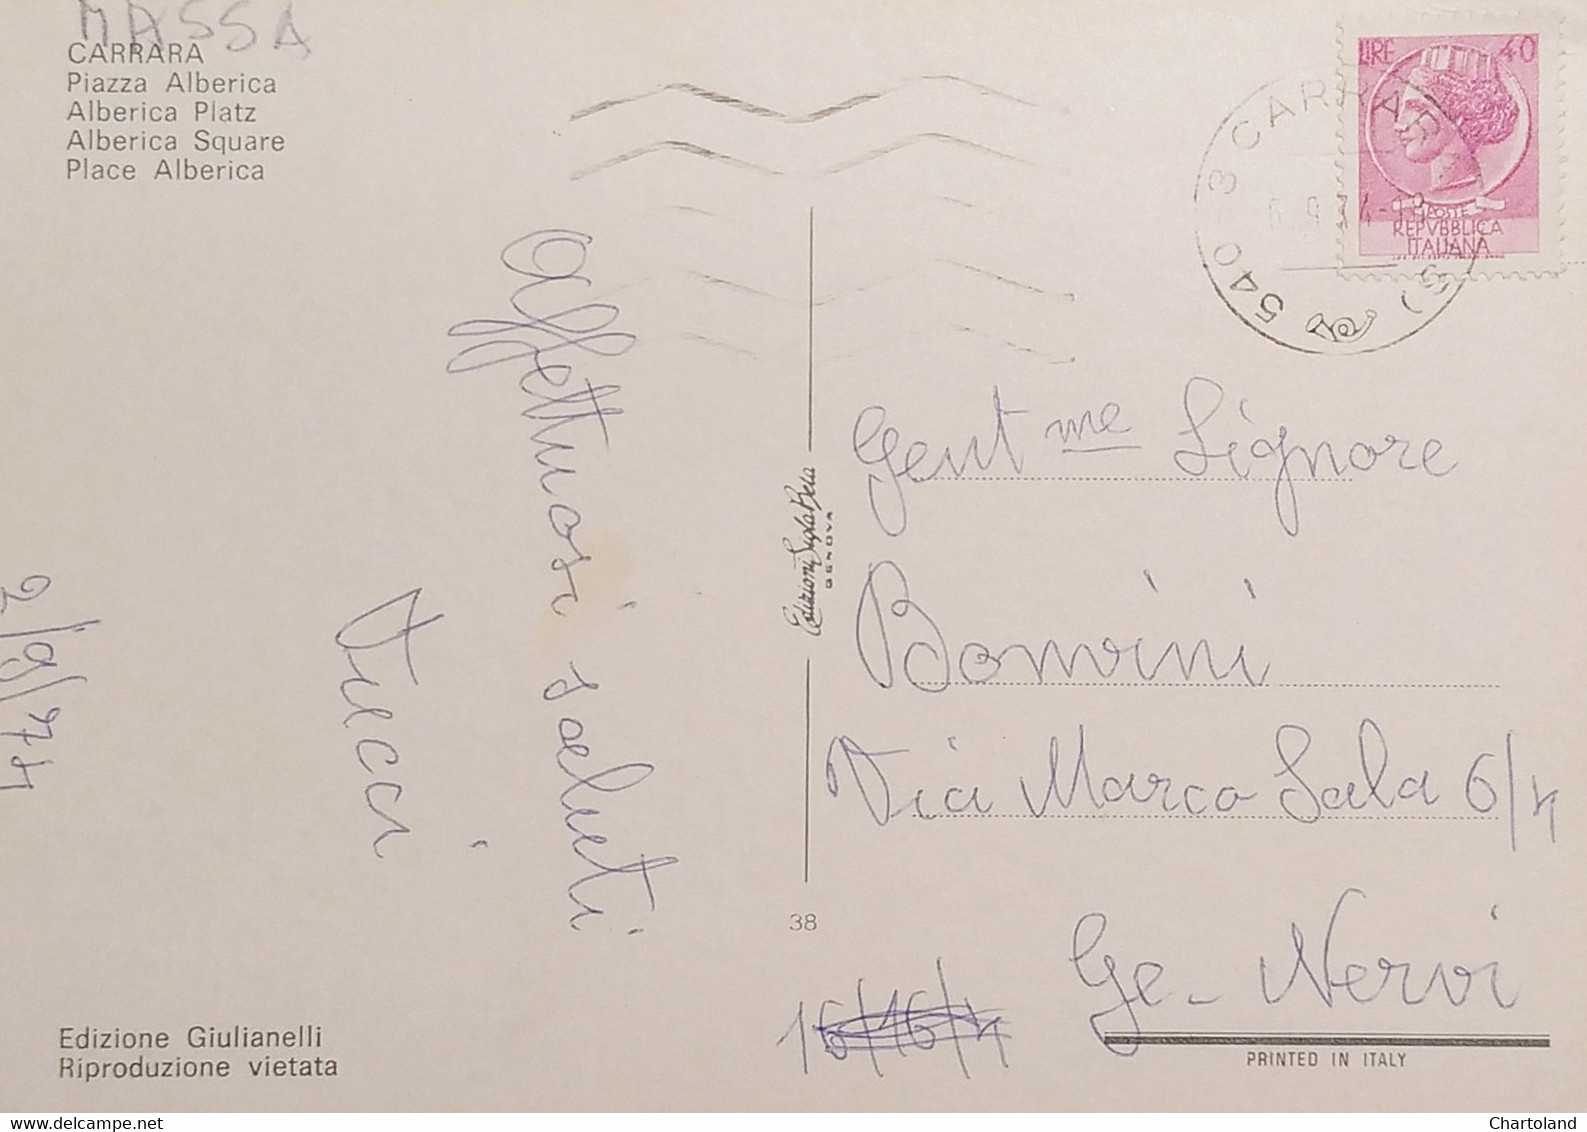 MASSA
CARRARA
Piazza Alberica
Alberica Platz
Alberica Square
Place Alberica
LIRE 40
POSTE
REPVBBLICA
ITALIANA
CARRARA
540
affettuosi saluti
2/9/74
Edizioni Sigla Beta
GENOVA
Gent me Signore
Bonvini
Via Marco Sala 6/4
Ge - Nervi
38
16/16/4
Edizione Giulianelli
Riproduzione vietata
PRINTED IN ITALY
Delcampe.net
Chartoland